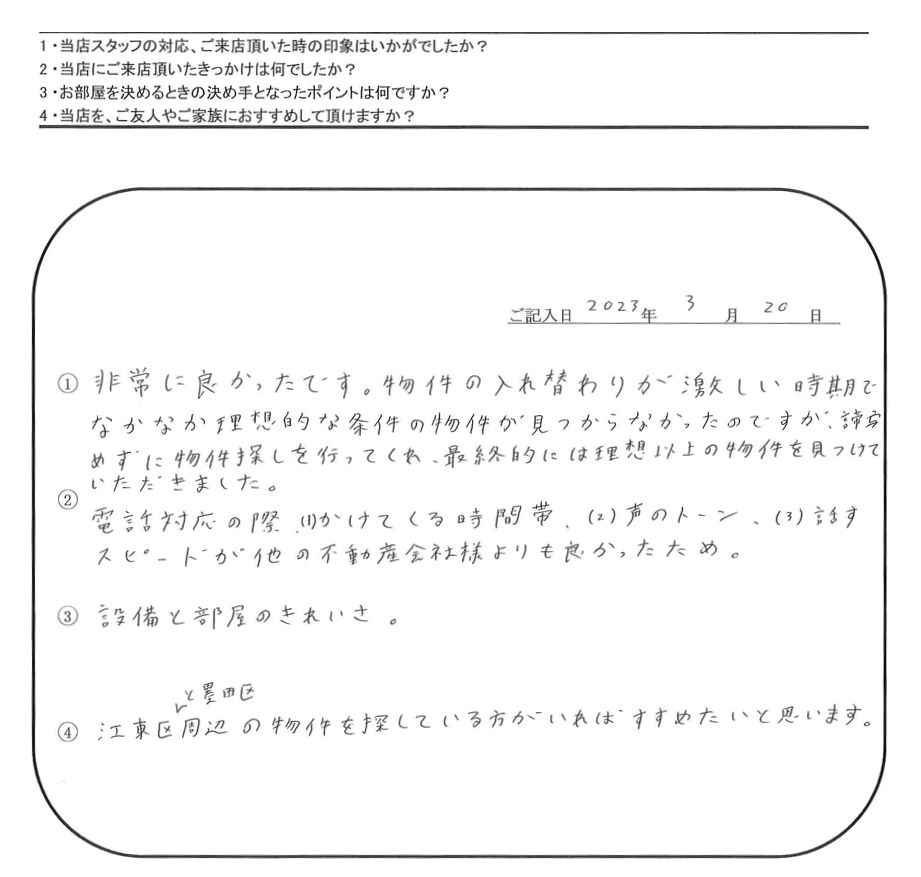 1・当店スタッフの対応、ご来店頂いた時の印象はいかがでしたか？
2・当店にご来店頂いたきっかけは何でしたか？
3・お部屋を決めるときの決め手となったポイントは何ですか？
4・当店を、ご友人やご家族におすすめして頂けますか？
ご記入日 2023年 3月 20日
① 非常に良かったです。物件の入れ替わりが激しい時期で
なかなか理想的な条件の物件が見つからなかったのですが、諦
めずに物件探しを行ってくれ、最終的には理想以上の物件を見つけて
いただきました。
② 電話対応の際、(1)かけてくる時間帯、(2)声のトーン、(3)話す
スピードが他の不動産会社様よりも良かったため。
③ 設備と部屋のきれいさ。
と墨田区
④ 江東区周辺の物件を探している方がいればすすめたいと思います。